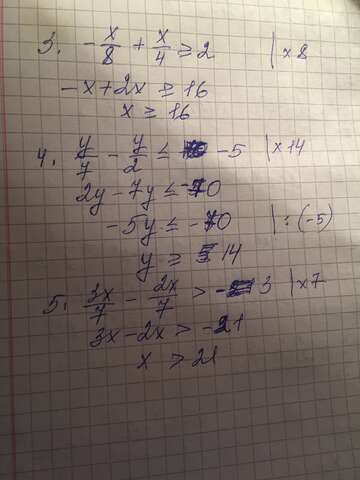 3. -x/8 + x/4 ≥ 2 | x 8
-x+2x ≥ 16
x ≥ 16
4. y/7 - y/2 ≤ -5 | x 14
2y-7y ≤ -70
-5y ≤ -70 | : (-5)
y ≥ 14
5. 3x/7 - 2x/7 > -3 | x 7
3x-2x > -21
x > 21